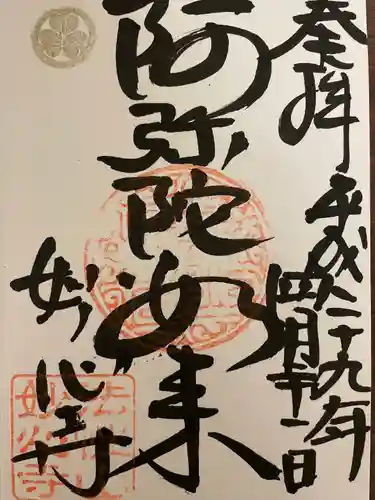 奉拝
平成二十九年
四月二十一日
阿弥陀如来
妙心寺